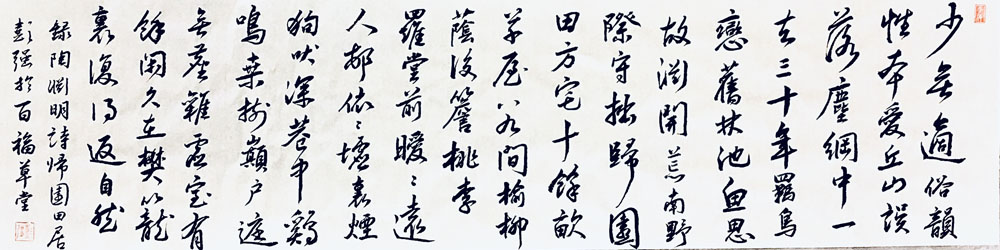 少無適俗韻
性本愛丘山誤
落塵網中一
去三十年羈鳥
戀舊林池魚思
故淵開荒南野
際守拙歸園
田方宅十餘畝
草屋八九間榆柳
蔭後簷桃李
羅堂前曖〻遠
人邨依〻墟裏煙
狗吠深巷中鷄
鳴桑樹巔戶庭
無塵雜虛室有
餘閑久在樊籠
裏復得返自然
錄陶淵明詩歸園田居
彭强於百福草堂